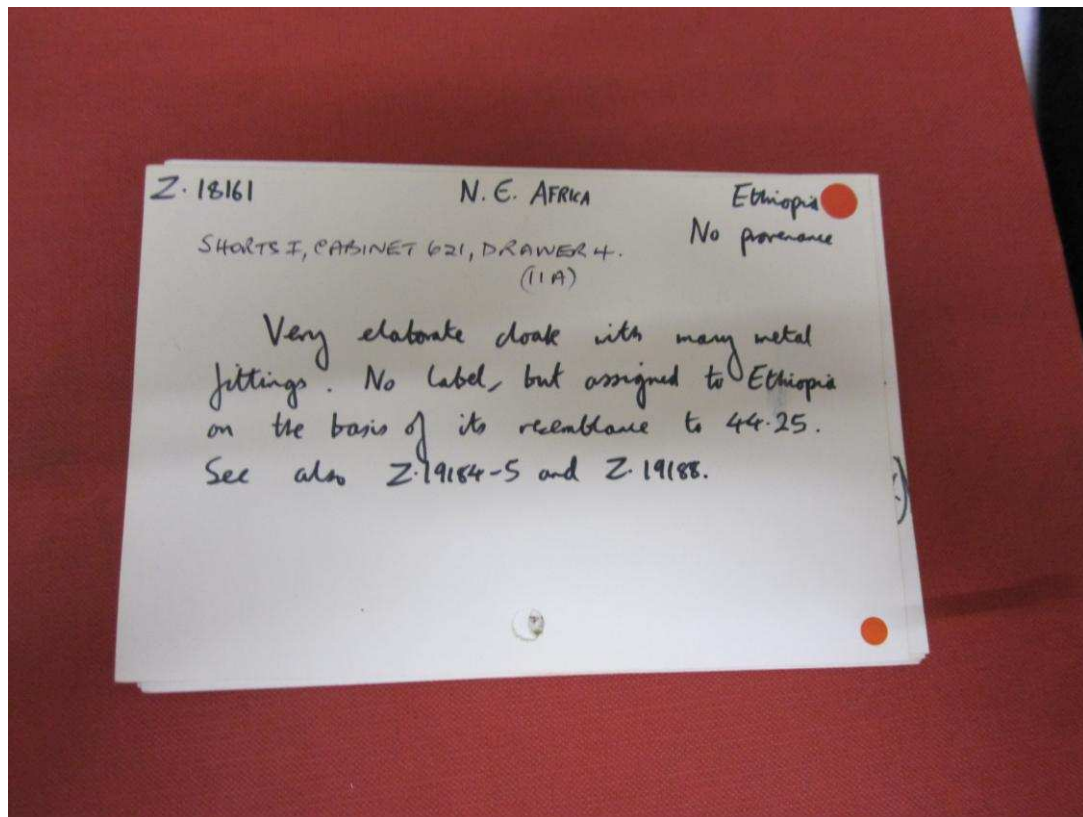 Z. 18161 N. E. AFRICA Ethiopia
No provenance
SHORTS I, CABINET 621, DRAWER 4.
(11A)
Very elaborate cloak with many metal
fittings. No label, but assigned to Ethiopia
on the basis of its resemblance to 44.25.
See also Z.19184-5 and Z.19188.